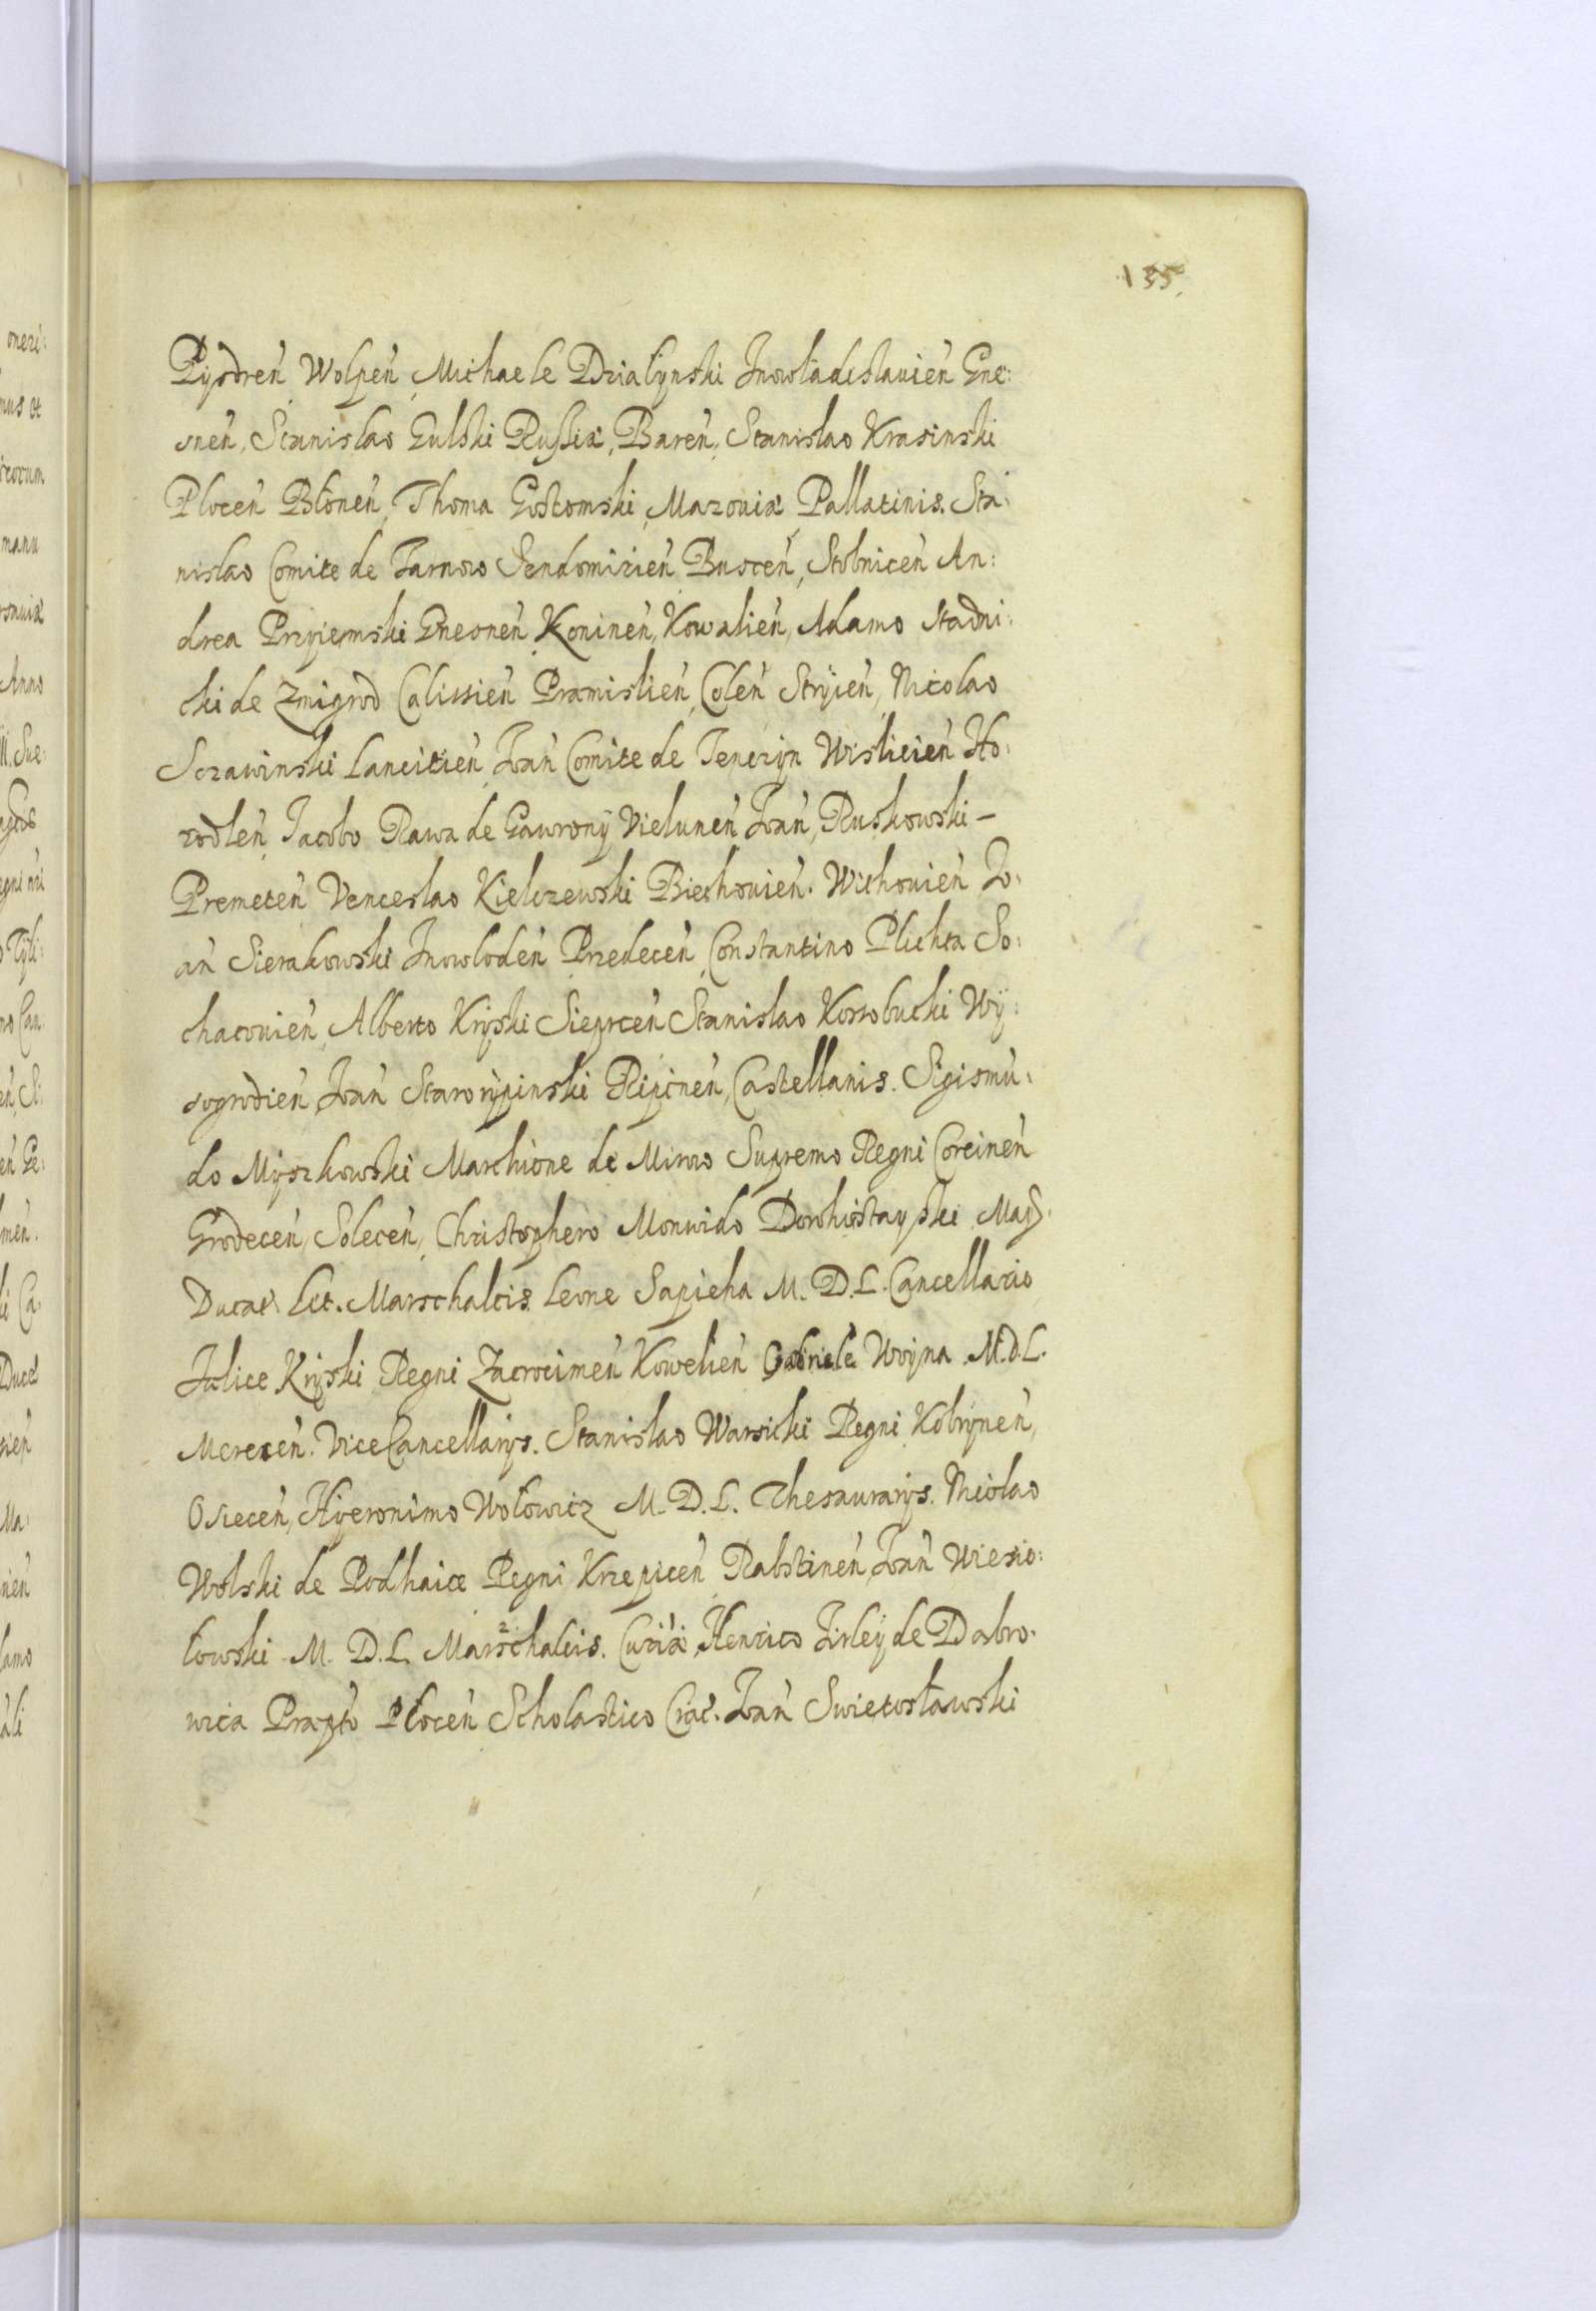 135.
Pyzdreń Wolpeń, Michaele Działynski Inowładislauień Gne:
sneń, Stanislao Gulski Russiæ, Bareń, Stanislao Krasinski
Ploceń Błoneń, Thoma Gostomski, Mazouiæ Pallatinis. Sta:
nislao Comite de Tarnow Sendomirień Busceń, Stobniceń An:
drea Przyiemski Gnesneń Konineń, Kowalień, Adamo Stadni:
cki de Zmigrod Calissień Præmislień, Coleń Stryień, Nicolao
Sczawinski Lancitień Joań Comite de Tenczyn Wislicień Ho:
rodleń Jacobo Rawa de Gawrony Vieluneń Joań, Ruskowski –
Premeteń Venceslao Kielczewski Biechouień. Wichouień Jo:
ań Sierakowski Inowlodeń Przedeceń Constantino Plichta So:
chacouień, Alberto Kryski Sieprceń Stanislao Kossobucki Wy:
sogrodień Joań Starorypinski Ripineń, Castellanis. Sigismu:
do Myszkowski Marchione de Mirow Supremo Regni Corcineń
Grodeceń, Soleceń, Christophero Monwido Dorohostayski Mag.
Ducat. Lit. Marschalcis. Leone Sapieha M. D. L. Cancellario
Felice Kryski Regni Zacrocimeń Kowelień Gabriele Woyna M. D. L.
Mereceń. ViceCancellarys. Stanislao Warsicki Regni Kobryneń,
Osieceń, Hyeronimo Wołowicz M. D. L. Thesaurarys. Nicolao
Wolski de Podhaice Regni Krzepiceń Rabstineń Joań Wiesio:
łowski M. D. L. Marschalcis. Curiæ, Henrico Firley de Dabro:
wica Præpto Płoceń Scholastico Crac. Joań Swietosławski
oneri:
nus et
manu
Anno